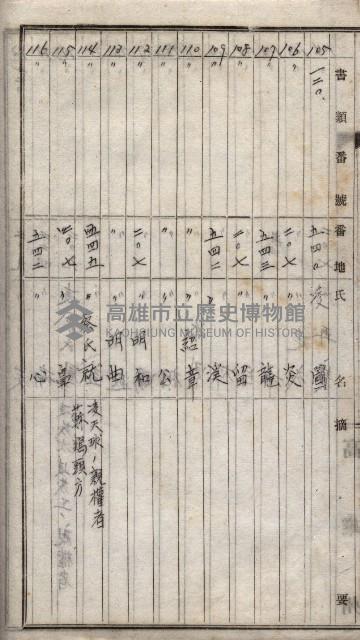 書類番號 番地 氏名 摘要
105 一二〇 五四〇 凌 圓
106 〃 二〇七 〃 炎
107 〃 五四三 〃 龍
108 〃 二〇七 〃 留
109 〃 五四三 〃 漢
110 〃 〃 〃 紹章
111 〃 〃 〃 公
112 〃 二〇七 〃 明和
113 〃 〃 〃 明曲
114 〃 五四五 〃 蔡氏 凌天球ノ親權者
蘇 頭方
115 〃 二〇七 〃
116 〃 五四三 〃 心
高雄市立歷史博物館
KAOHSIUNG MUSEUM OF HISTORY